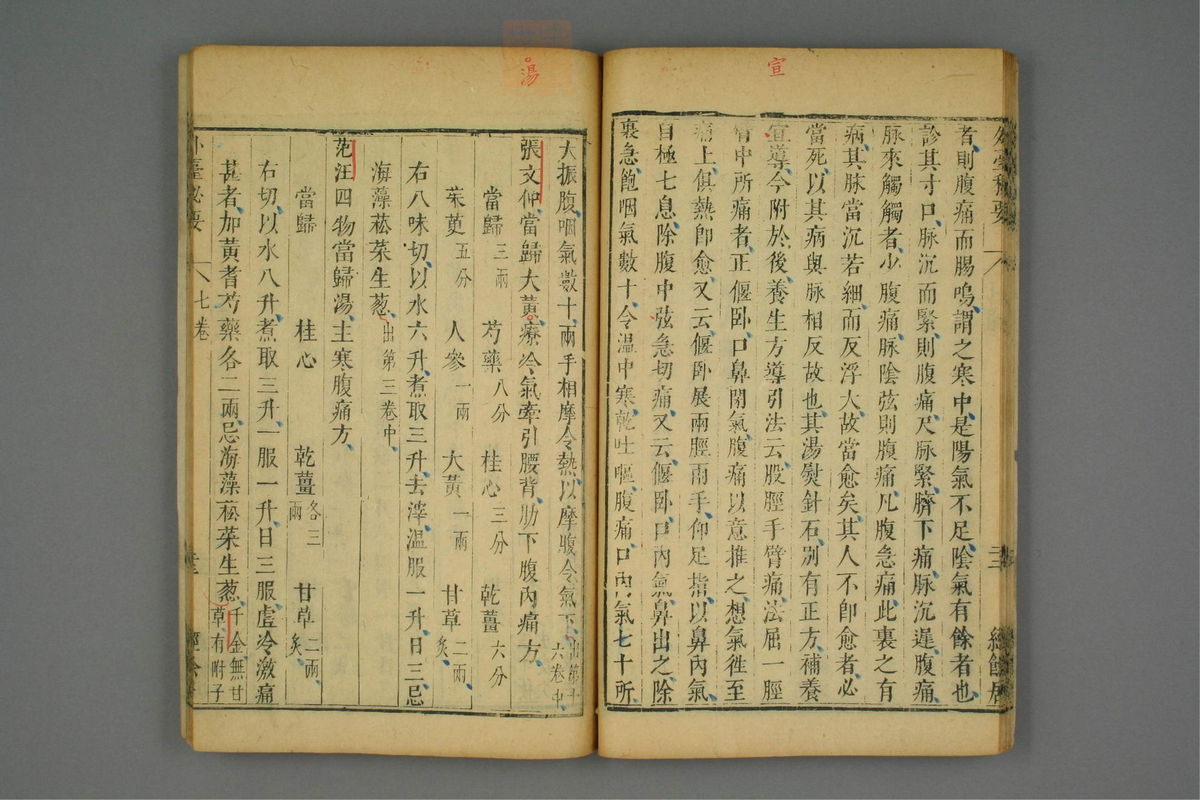 宣
外臺秘要
三
經餘居
者則腹痛而腸鳴謂之寒中是陽氣不足陰氣有餘者也
診其寸口脉沉而緊則腹痛尺脉緊臍下痛脉沉遲腹痛
脉來觸觸者少腹痛脉陰弦則腹痛凡腹急痛此裏之有
病其脉當沉若細而反浮大故當愈矣其人不即愈者必
當死以其病與脉相反故也其湯熨針石别有正方補養
宣導今附於後養生方導引法云股脛手臂痛法屈一脛
臂中所痛者正偃卧口鼻閉氣腹痛以意推之想氣徃至
痛上俱熱即愈又云偃卧展兩脛兩手仰足指以鼻内氣
自極七息除腹中弦急切痛又云偃卧口内氣鼻出之除
裏急飽咽氣數十令温中寒乾吐嘔腹痛口内氣七十所
湯
大振腹咽氣數十兩手相摩令熱以摩腹令氣下出第十六卷中
張文仲當歸大黄療冷氣牽引腰背肋下腹内痛方
當歸三兩 芍藥八分 桂心三分 乾薑六分
茱萸五分 人參一兩 大黄一兩 甘草二兩炙
右八味切以水六升煮取三升去滓温服一升日三忌
海藻菘菜生葱出第三卷中
范汪四物當歸湯主寒腹痛方
當歸 桂心 乾薑各三兩 甘草二兩炙
右切以水八升煮取三升一服一升日三服虚冷激痛
甚者加黄耆芍藥各二兩忌海藻菘菜生葱千金無甘草有附子
外臺秘要
七卷
三
經餘居